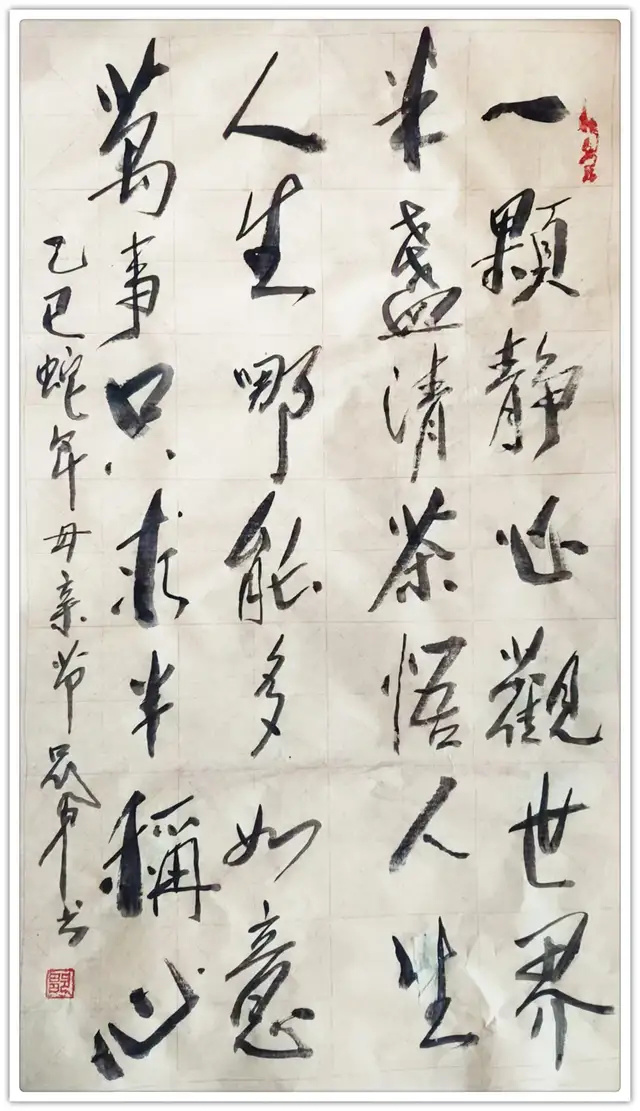 一顆靜心觀世界
半盞清茶悟人生
人生哪能多如意
萬事只求半稱心
乙巳蛇年母亲节
书